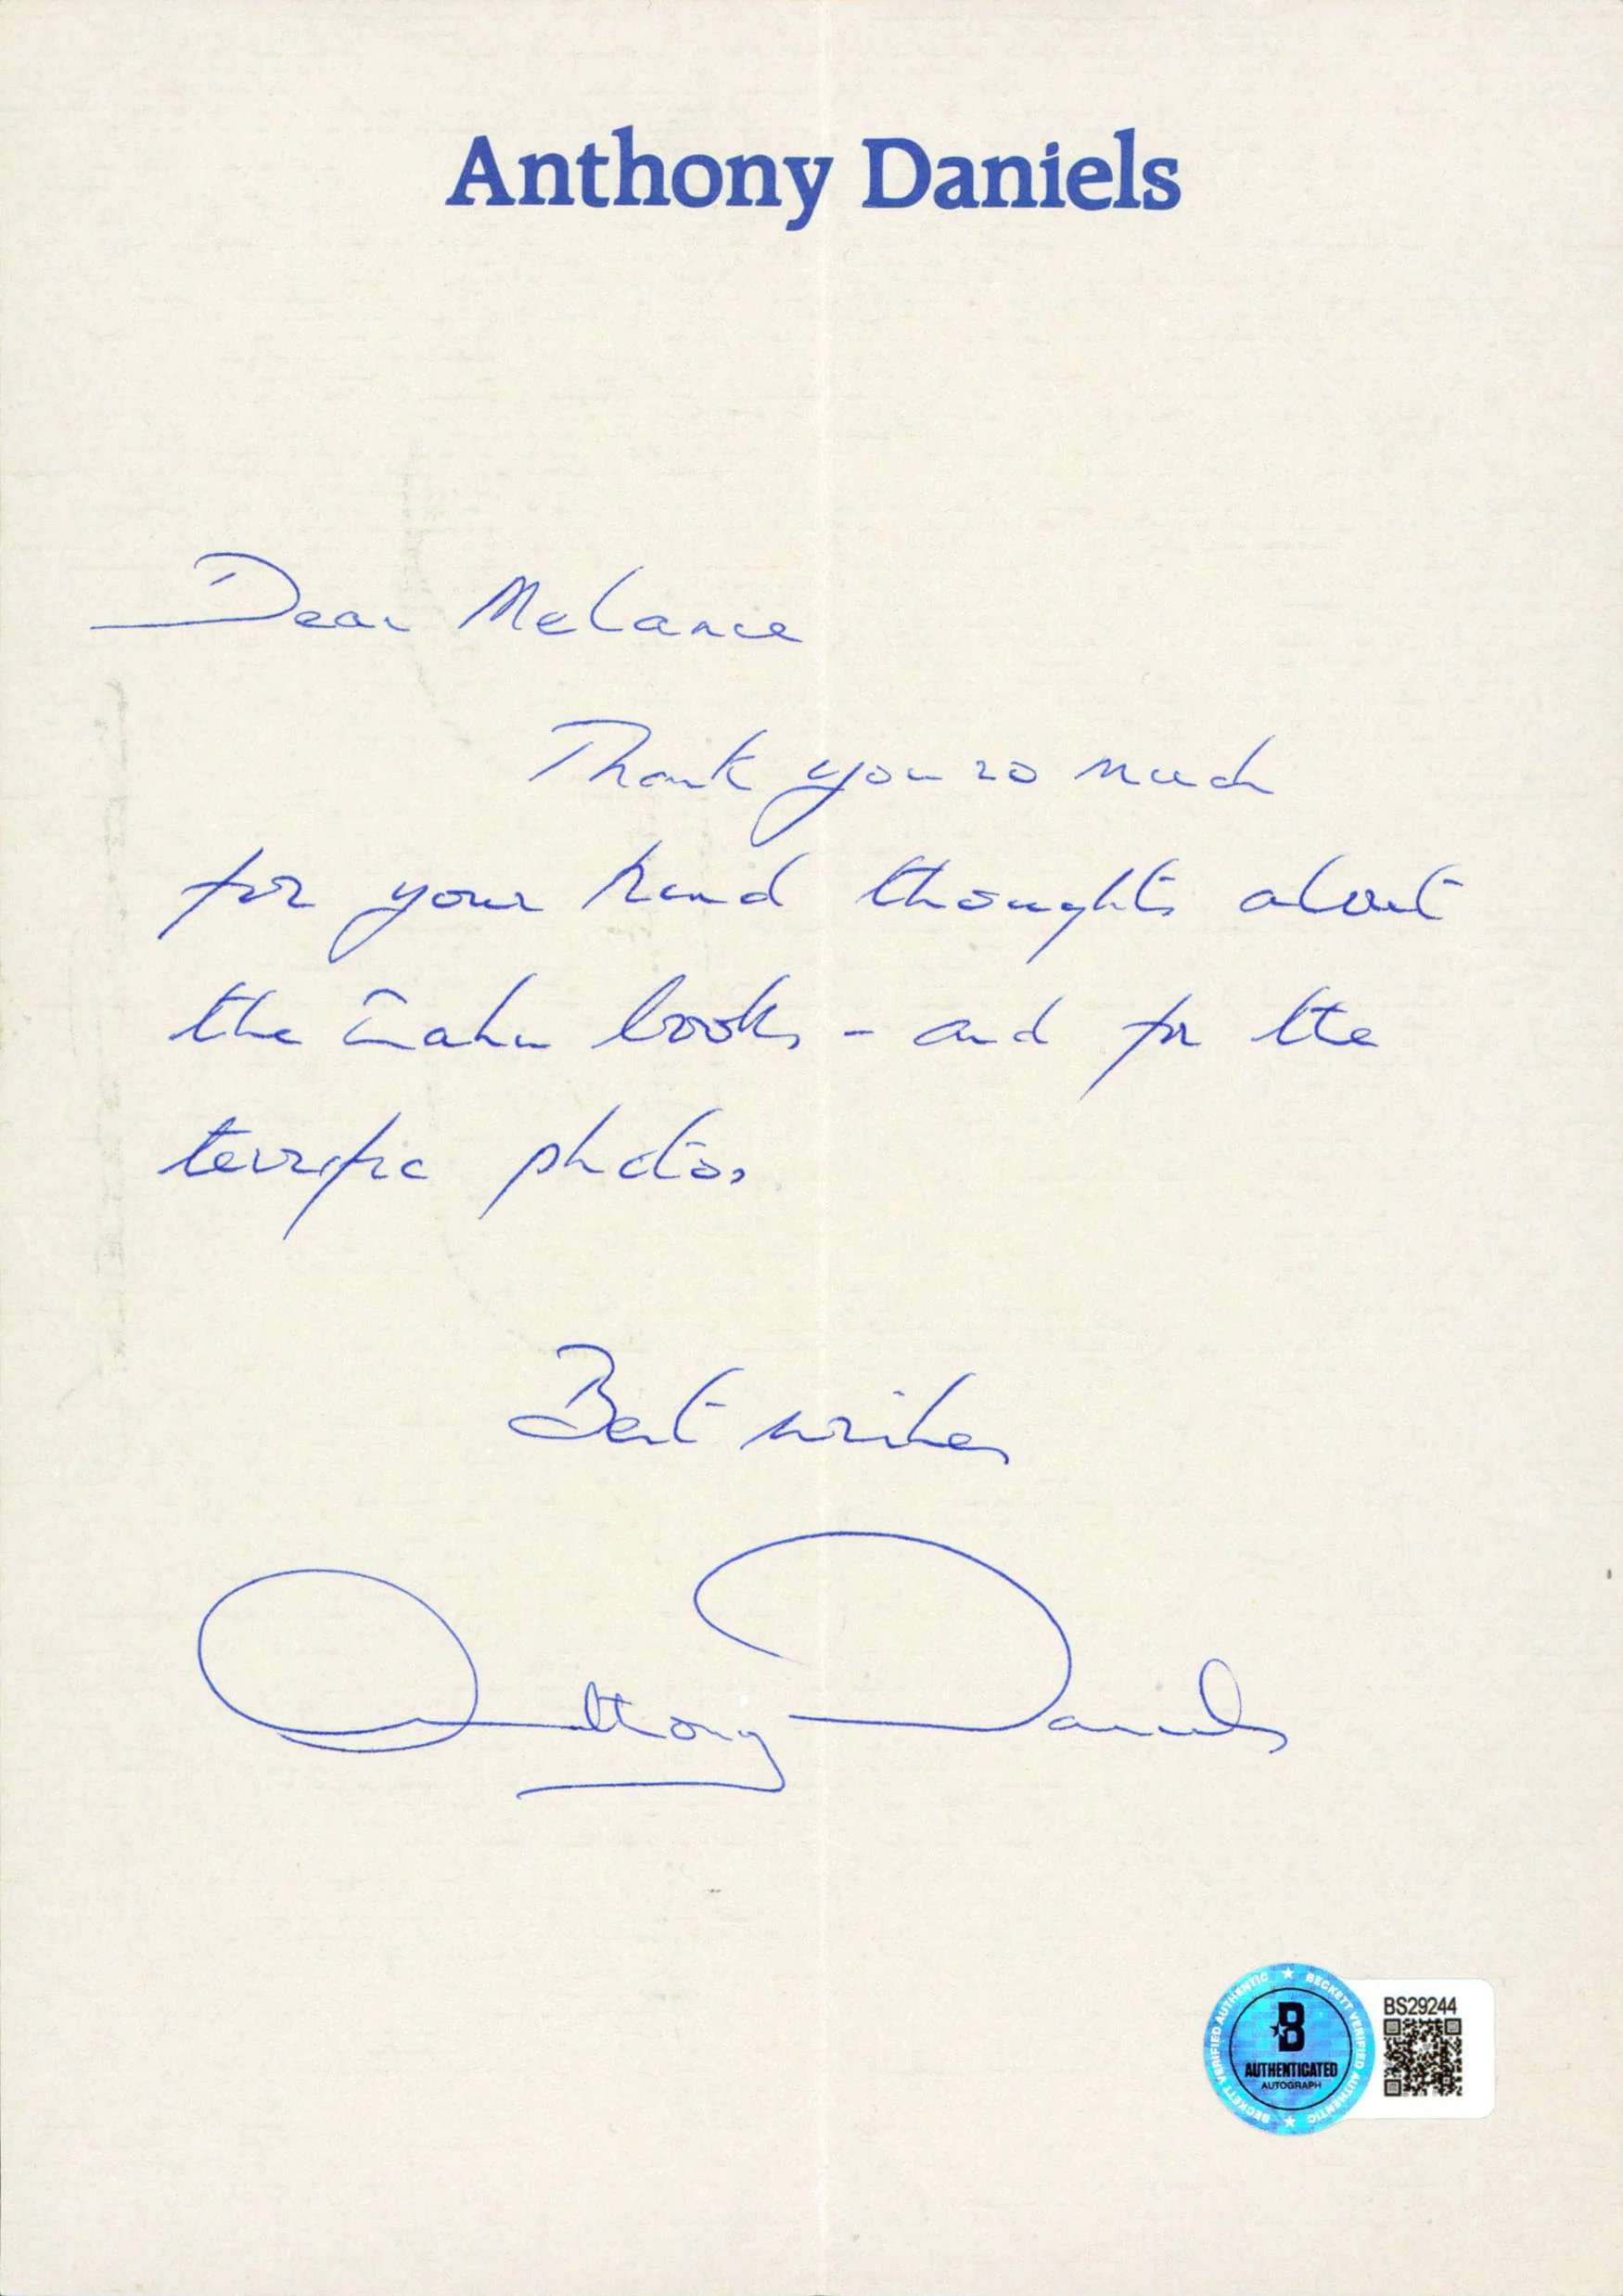 Anthony Daniels
Dear Melanie
Thank you so much
for your kind thoughts about
the books - and for the
terrific photos
Best wishes
Anthony Daniels
BECKETT VERIFIED AUTHENTIC ★ BECKETT VERIFIED AUTHENTIC ★
B
AUTHENTICATED
AUTOGRAPH
BS29244